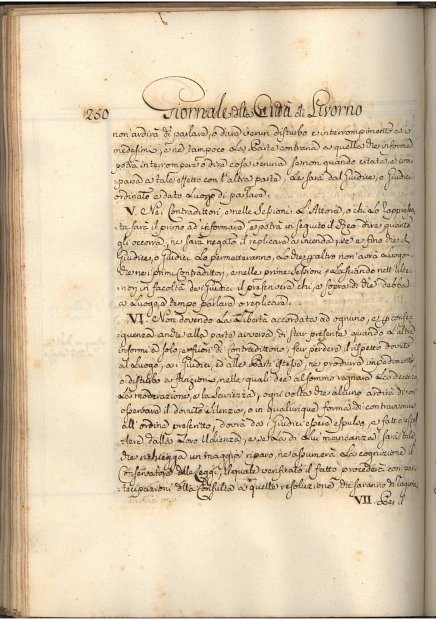 250 Giornale della Città di Livorno
non ardirà di parlare, o dare verun disturbo e interrompimento a i
medesimi, e nè tampoco la Parte contraria a quella che informa
potrà interrompere o dire cosa veruna se non quando citata, e com
parsa a tale effetto con l'altra parte, le sarà dal Giudice, o Giudici
ordinato e dato luogo di parlare.
V. Nei Contradittori, e nelle Sessioni L'Attore, o chi lo rappresen
ta sarà il primo ad informare e potrà in seguito il Reo dire quanto
gli occorra, ne sarà negato il replicare a vicenda, se e fino che il
Giudice, o Giudici lo permetteranno, lo che peraltro non avrà luogo
che ne i primi Contradittori, e nelle prime Sessioni, lasciando nell'ulte
riori in facoltà dei Giudici il prescrivere chi, e sopra di che debba
e luogo, e tempo parlare o replicare.
VI. Non dovendo la libertà accordata ad ognuno, e in conse
guenza anche alle parte avversa di star presente quando l'altra
informa solo, e fuori di contradittorio, far perdere il rispetto dovuto
al luogo, a i Giudici, ed alle Parti istesse, ne produrre impedimento
o disturbo a funzioni, nelle quali dee al sommo regnare la decenza
la moderazione, e la saviezza, ogni volta che alcuno ardirà di non
osservare il dovuto silenzio, o in qualunque forma di contravvenire
all'ordine prescritto, dovrà da i Giudici essere espulso, e fatto espel
lere dalla loro Udienza, e se la di lui mancanza sarà tale
che richiegga un maggior riparo, ne assumerà la cognizione il
Conservatore delle Leggi, il quale verificato il fatto procederà con par
tecipazione della Consulta a quelle resoluzioni, che saranno di ragione.
VII. Per il